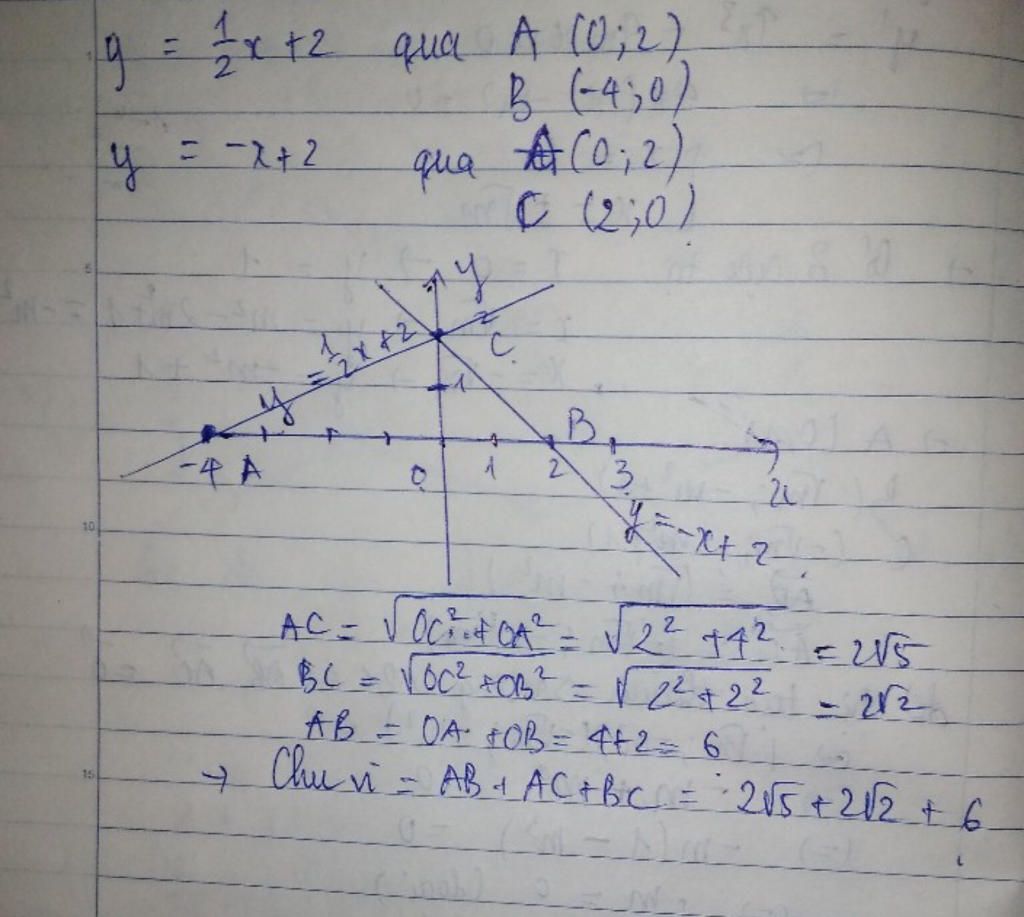 y = 1/2 x + 2 qua A (0; 2)
B (-4; 0)
y = -x + 2 qua A (0; 2)
C (2; 0)
y
2
C
y = 1/2 x + 2
1
B
-4 A
0
1
2
3
x
y = -x + 2
AC = √(OC² + OA²) = √(2² + 4²) = 2√5
BC = √(OC² + OB²) = √(2² + 2²) = 2√2
AB = OA + OB = 4+2 = 6
→ Chu vi = AB + AC + BC = 2√5 + 2√2 + 6
5
10
15